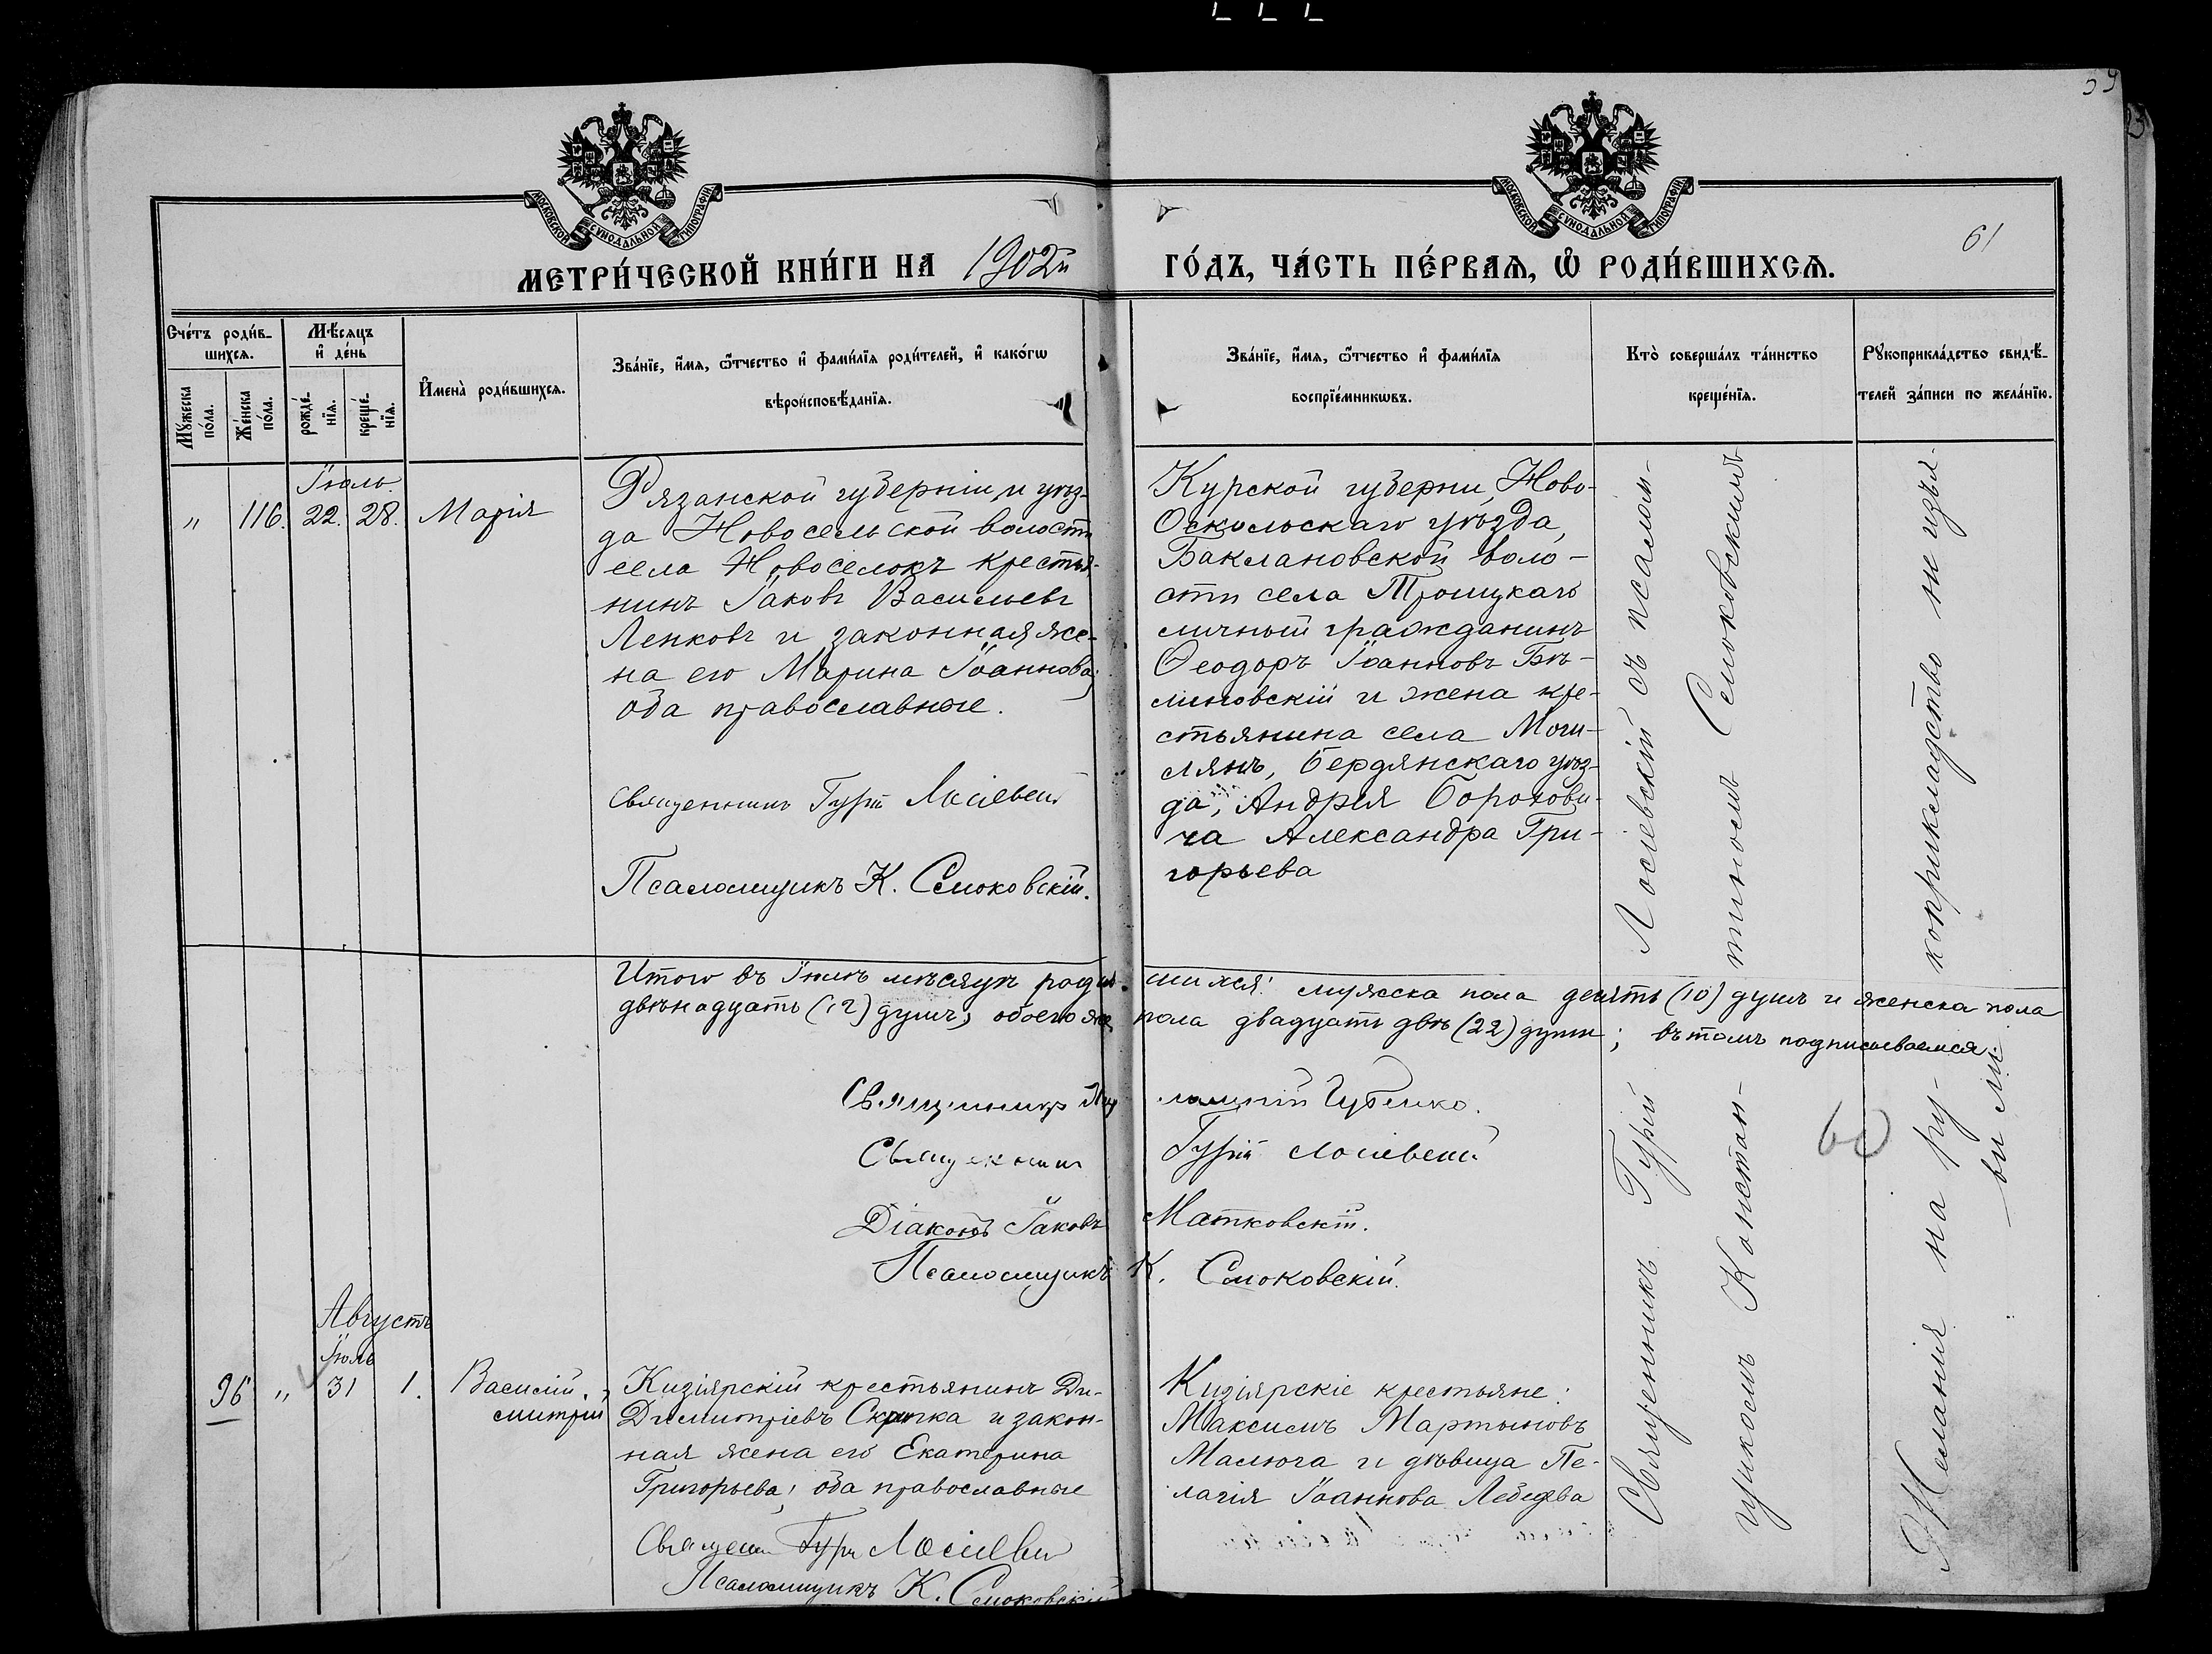 59
61
МОСКОВСКОЙ СѴНОДАЛЬНОЙ ТИПОГРАФІИ
МОСКОВСКОЙ СѴНОДАЛЬНОЙ ТИПОГРАФІИ
МЕТРИ́ЧЕСКОЙ КНИ́ГИ НА 1902й ГО́ДЪ, ЧА́СТЬ ПЕ́РВАѦ, Ѡ҆ РОДИ́ВШИХСѦ.
Сче́тъ роди́в-
шихсѧ.
Мꙋ́жеска по́ла.
Же́нска по́ла.
Мѣ́сѧцъ
и҆ де́нь
рожде́-
нїѧ.
креще́-
нїѧ.
И҆мена̀ роди́вшихсѧ.
Зва́нїе, и҆́мѧ, ѻ҆́тчество и҆ фами́лїѧ роди́телей, и҆ како́гѡ
вѣроисповѣ́данїѧ.
Зва́нїе, и҆́мѧ, ѻ҆́тчество и҆ фами́лїѧ
воспрїе́мникѡвъ.
Кто̀ соверша́лъ та́инство
креще́нїѧ.
Рꙋкоприкла́дство свидѣ́-
телей за́писи по жела́нїю.
Іюль.
" 116. 22. 28. Марія
Рязанской губерніи и уѣз-
да Новосельской волости
села Новоселокъ крестья-
нинъ Іаковъ Васильевъ
Ленковъ и законная же-
на его Марина Іоаннова;
оба православные.
Священникъ Гурій Лосіевскій
Псаломщикъ К. Смоковскій.
Курской губерни, Ново-
Оскольскаго уѣзда,
Баклановской воло-
сти села Троицкаго
личный гражданинъ
Ѳеодоръ Іоанновъ Бѣ-
линовскій и жена кре-
стьянина села Моги-
лянъ, Бердянскаго уѣз-
да, Андрея Борохови-
ча Александра Гри-
горьева
Итого въ Іюлѣ мѣсяцѣ родив-шихся: мужска пола десять (10) душъ и женска пола
двѣнадцать (12) душъ, обоего же пола двадцать двѣ (22) души; въ томъ подписываемся:
Священникъ Губенко.
Священникъ Гурій Лосіевскій
Діаконъ Іаковъ Матковскій.
Псаломщикъ К. Смоковскій.
60
Августъ
Іюль
96 " 31 1. Василій.
Кизіярскій крестьянинъ Ди-
митрій Димитріевъ Скрипка и закон-
ная жена его Екатерина
Григорьева; оба православные
Священ. Гурій Лосіевскій
Псаломщикъ К. Смоковскій
Кизіярскіе крестьяне:
Максимъ Мартыновъ
Малюга и дѣвица Пе-
лагія Іоаннова Лебедева
Священникъ Гурій Лосіевскій съ псалом-
щикомъ Констан-тиномъ Смоковскимъ
Желанія на ру-коприкладство не изъя-
вили.